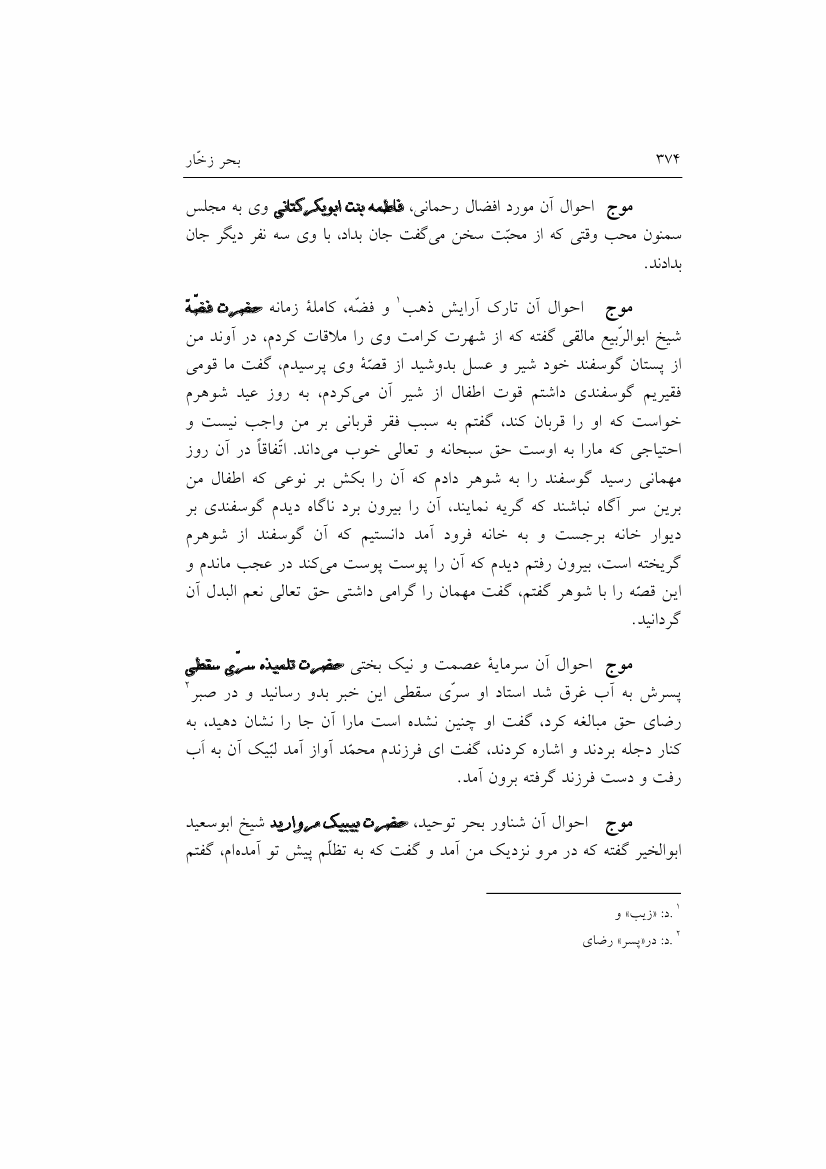 ۳۷۴ بحر زخّار
موج احوال آن مورد افضال رحمانی، فاطمه بنت ابوبکر کتانی وی به مجلس
سمنون محب وقتی که از محبّت سخن می‌گفت جان بداد، با وی سه نفر دیگر جان
بدادند.
موج احوال آن تارک آرایش ذهب۱ و فضّه، کاملۀ زمانه حضرت فضّة
شیخ ابوالرّبیع مالقی گفته که از شهرت کرامت وی را ملاقات کردم، در آوند من
از پستان گوسفند خود شیر و عسل بدوشید از قصّۀ وی پرسیدم، گفت ما قومی
فقیریم گوسفندی داشتم قوت اطفال از شیر آن می‌کردم، به روز عید شوهرم
خواست که او را قربان کند، گفتم به سبب فقر قربانی بر من واجب نیست و
احتیاجی که مارا به اوست حق سبحانه و تعالی خوب می‌داند. اتّفاقاً در آن روز
مهمانی رسید گوسفند را به شوهر دادم که آن را بکش بر نوعی که اطفال من
برین سر آگاه نباشند که گریه نمایند، آن را بیرون برد ناگاه دیدم گوسفندی بر
دیوار خانه برجست و به خانه فرود آمد دانستیم که آن گوسفند از شوهرم
گریخته است، بیرون رفتم دیدم که آن را پوست پوست می‌کند در عجب ماندم و
این قصّه را با شوهر گفتم، گفت مهمان را گرامی داشتی حق تعالی نعم البدل آن
گردانید.
موج احوال آن سرمایۀ عصمت و نیک بختی حضرت تلمیذه سرّی سقطی
پسرش به آب غرق شد استاد او سرّی سقطی این خبر بدو رسانید و در صبر۲
رضای حق مبالغه کرد، گفت او چنین نشده است مارا آن جا را نشان دهید، به
کنار دجله بردند و اشاره کردند، گفت ای فرزندم محمّد آواز آمد لبّیک آن به آب
رفت و دست فرزند گرفته برون آمد.
موج احوال آن شناور بحر توحید، حضرت بیبیک مروارید شیخ ابوسعید
ابوالخیر گفته که در مرو نزدیک من آمد و گفت که به تظلّم پیش تو آمده‌ام، گفتم
۱ .د: «زیب» و
۲ .د: در«پسر» رضای